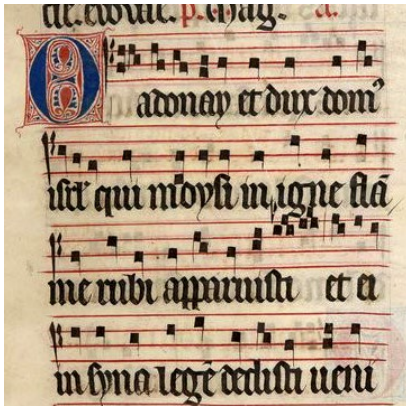 cte. euouae. p. Mag. a.
O adonay et dux dom⁹
isrl qui moysi in igne flā
me rubi apparuisti et ei
in syna legē dedisti ueni